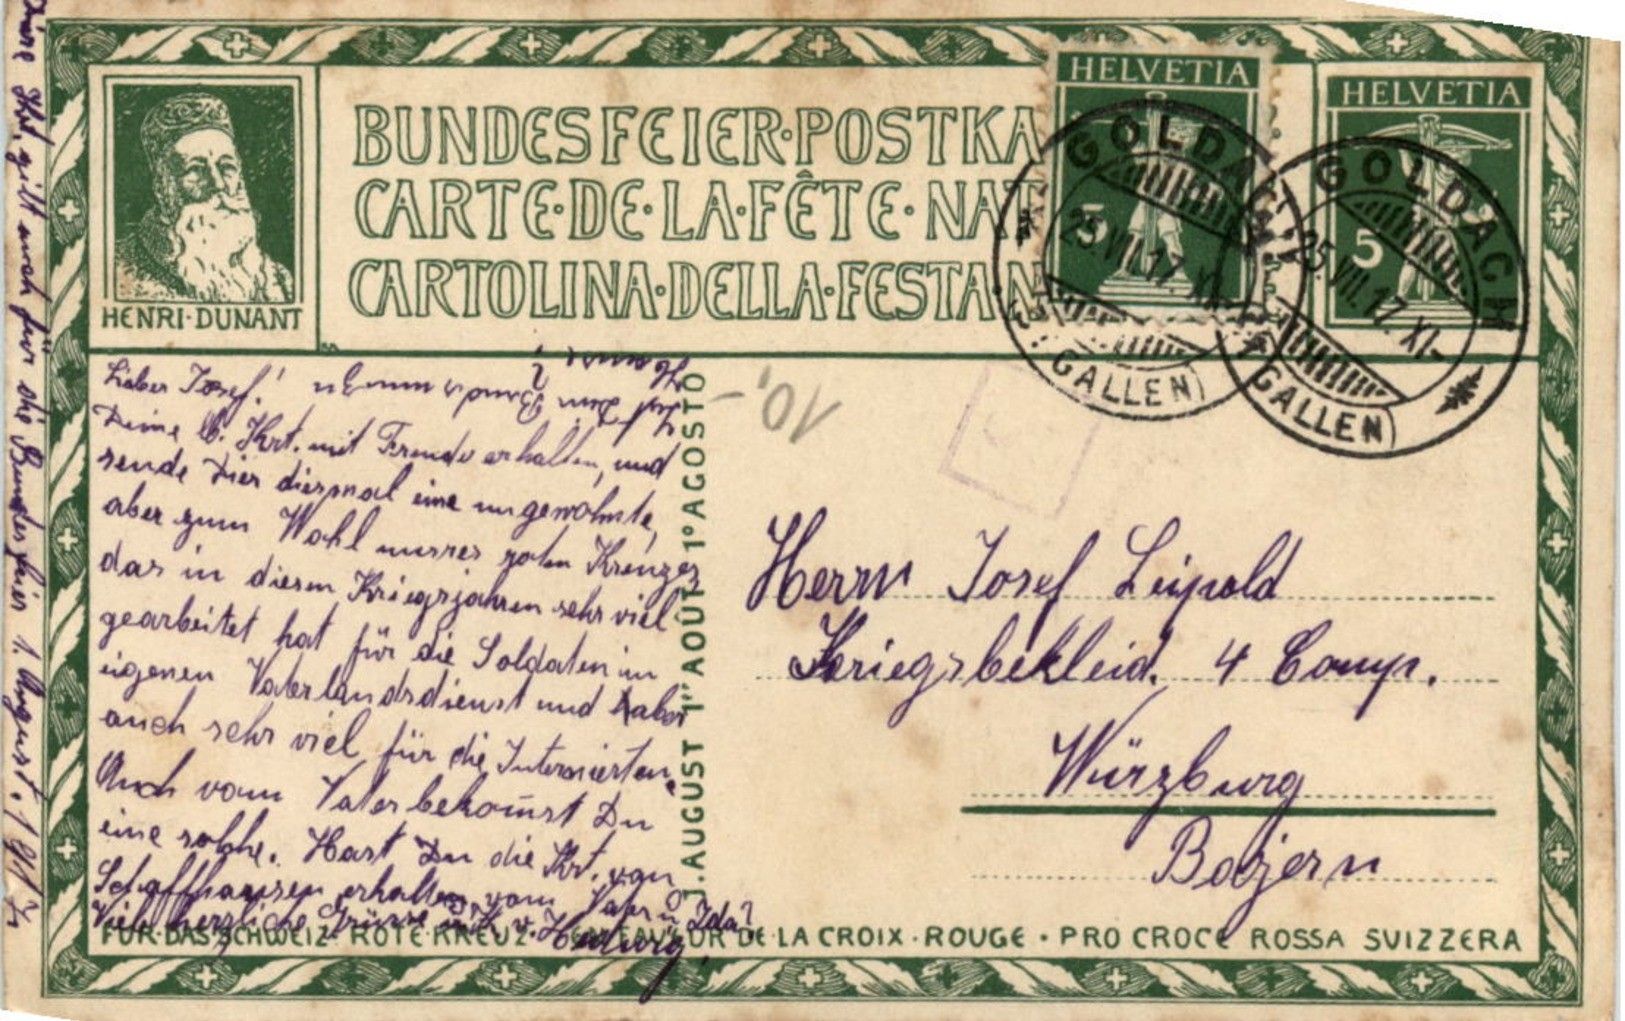 HENRI·DUNANT
BUNDESFEIER·POSTKA
CARTE·DE·LA·FÊTE·NAT
CARTOLINA·DELLA·FESTA·N
HELVETIA
5
HELVETIA
5
GOLDACH
25.VII.17. XI-
(ST. GALLEN)
GOLDACH
25.VII.17. XI-
(ST. GALLEN)
10,-
Lieber Josef!
Deine lb. Krt. mit Freude erhalten, und
sende Dier diesmal eine ungewohnte,
aber zum Wohl unsres roten Kreuzes
das in diesen Kriegsjahren sehr viel
gearbeitet hat für die Soldaten im
eigenen Vaterlandsdienst und aber
auch sehr viel für die Internierten.
Auch vom Vater bekomst Du
eine solche. Hast Du die Krt. von
Schaffhausen erhalten, vom Vater u. Ida?
Viele herzliche Grüsse u. K. v. Hedwig.
Diese Krt. gilt auch für die Bundesfeier 1. August. 1917
1. AUGUST 1er AOÛT 1º AGOSTO
Herrn Josef Leipold
Kriegsbekleid. 4 Comp.
Würzburg
Bayern
FÜR·DAS·SCHWEIZ·ROTE·KREUZ·EN FAVEUR DE LA CROIX·ROUGE·PRO CROCE ROSSA SVIZZERA